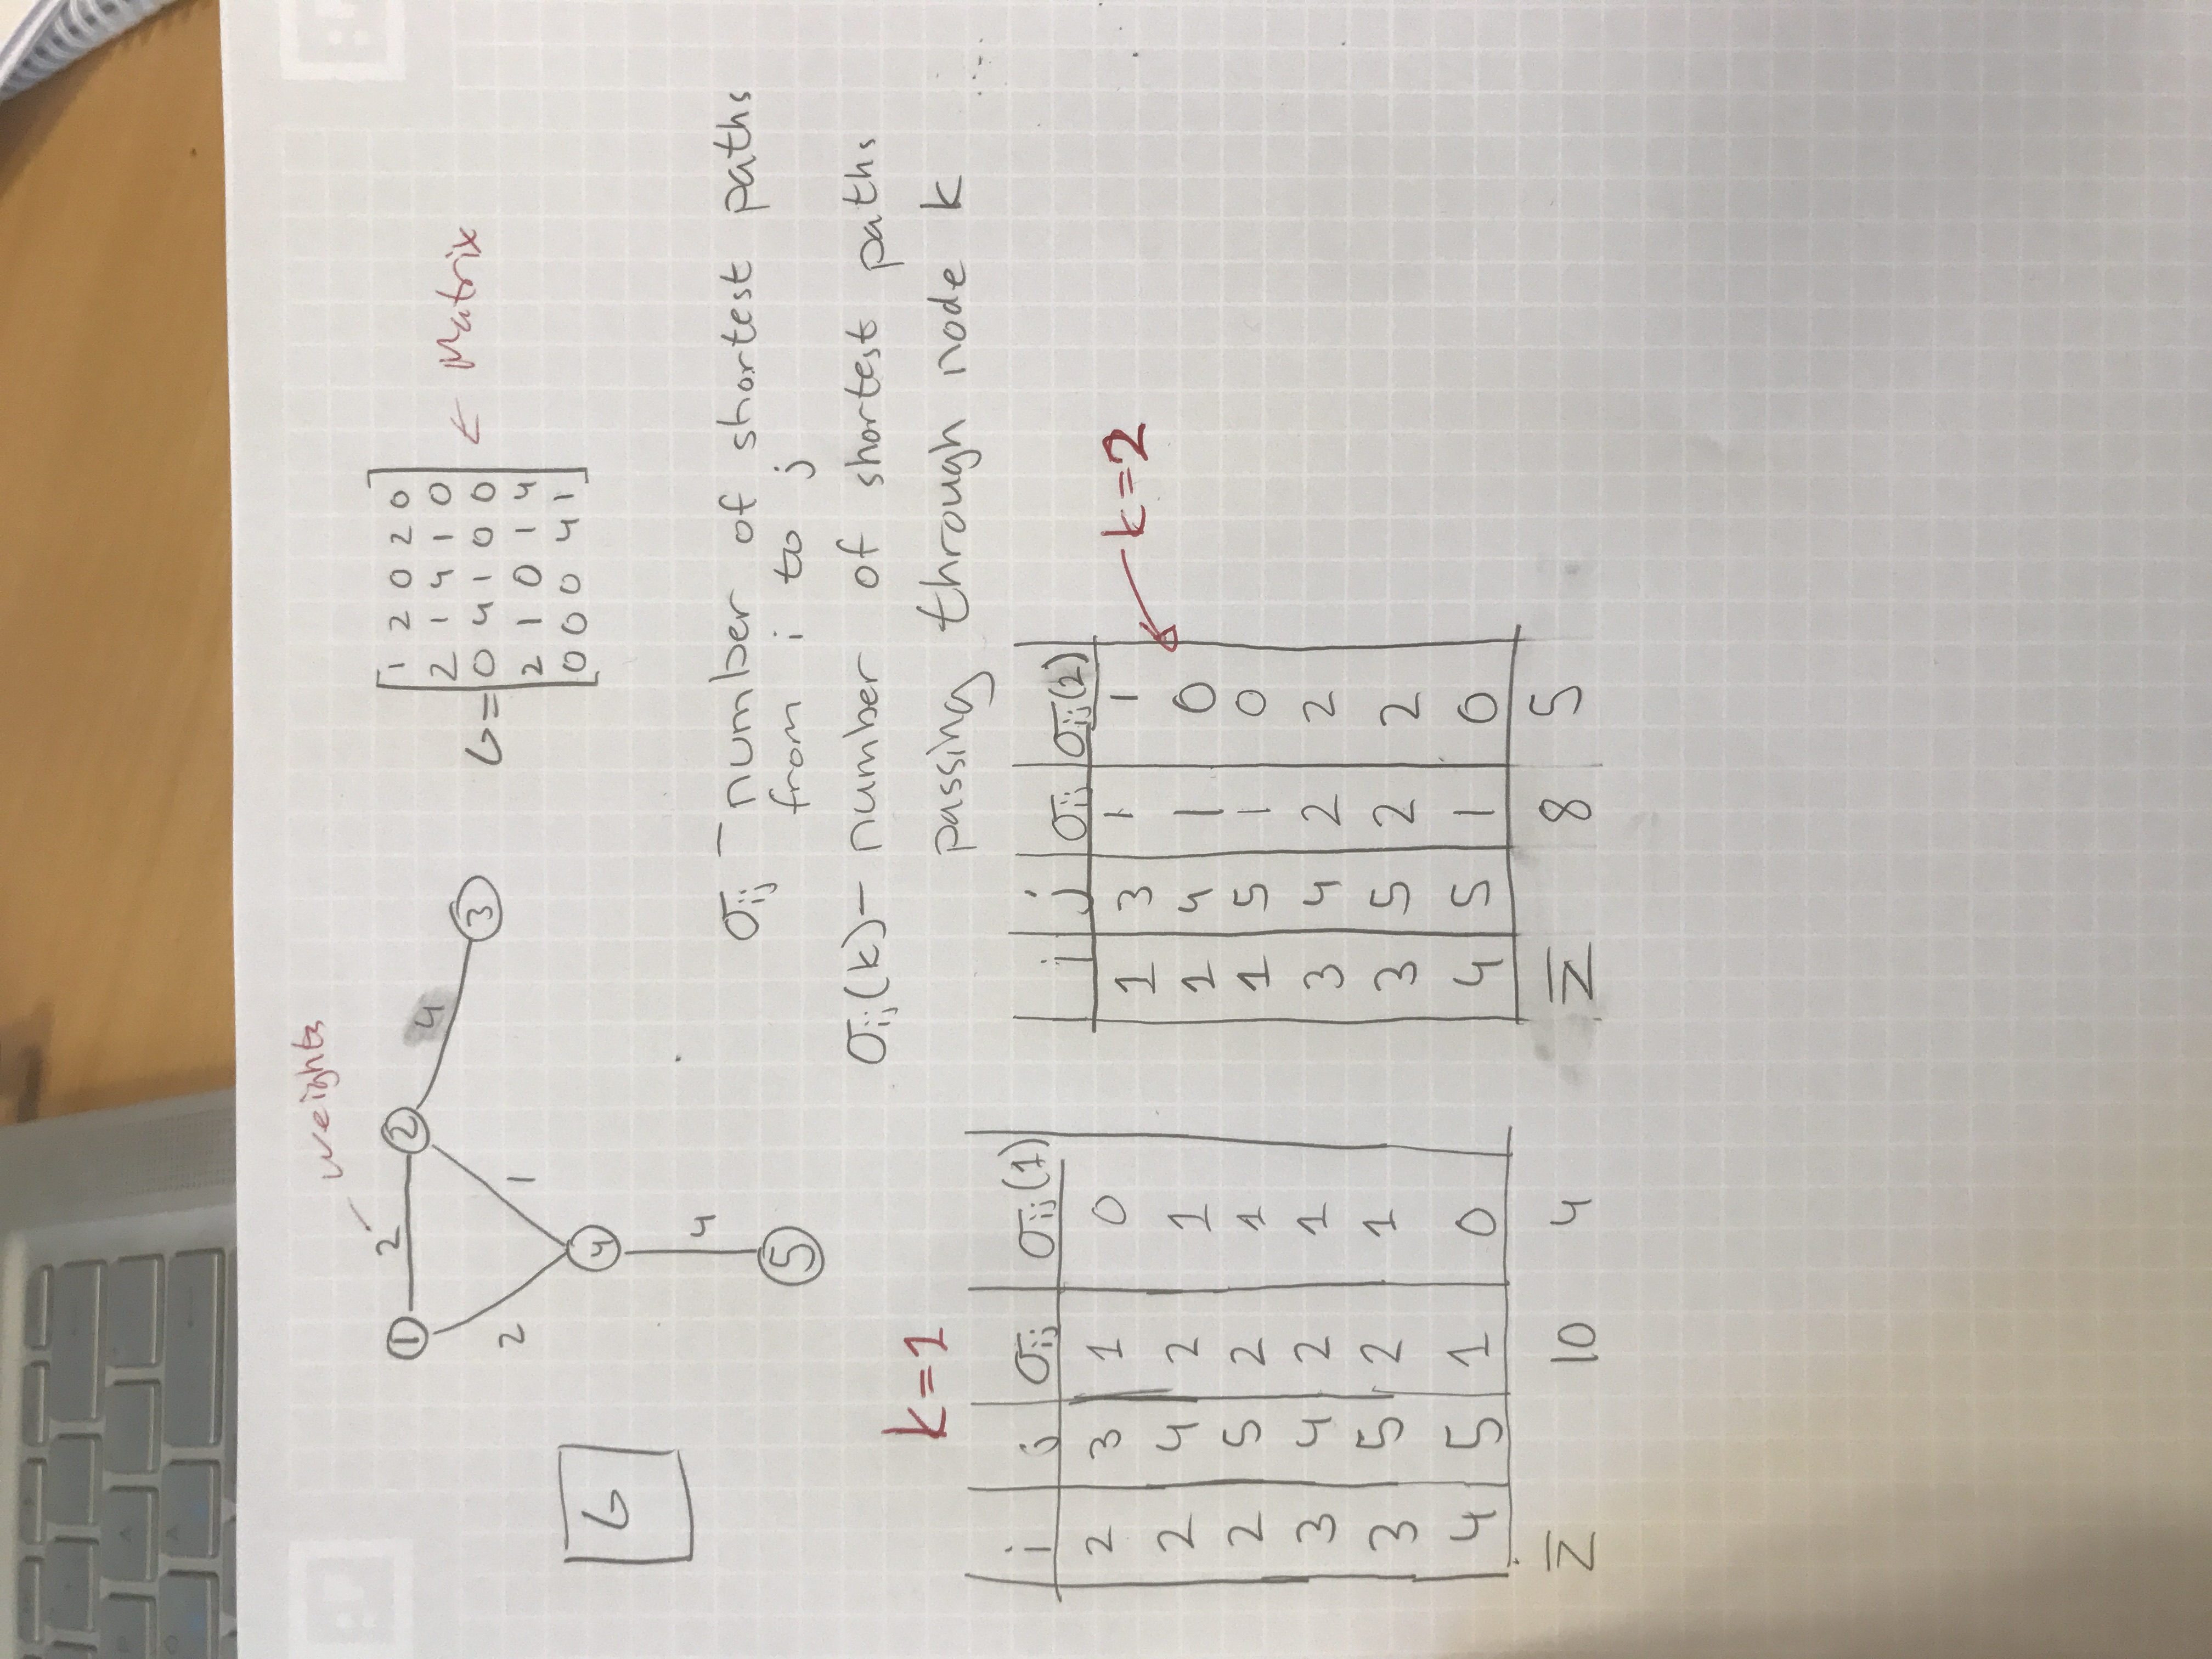 weights
1 2 2
4
3
2 1
4
4
5
G
G=
1 2 0 2 0
2 1 4 1 0
0 4 1 0 0
2 1 0 1 4
0 0 0 4 1
← Matrix
σij - number of shortest paths
from i to j
σij(k) - number of shortest paths
passing through node k
k=1
i j σij σij(1)
2 3 1 0
2 4 2 1
2 5 2 1
3 4 2 1
3 5 2 1
4 5 1 0
Σ 10 4
i j σij σij(2)
1 3 1 1
1 4 1 0
1 5 1 0
3 4 2 2
3 5 2 2
4 5 1 0
Σ 8 5
k=2